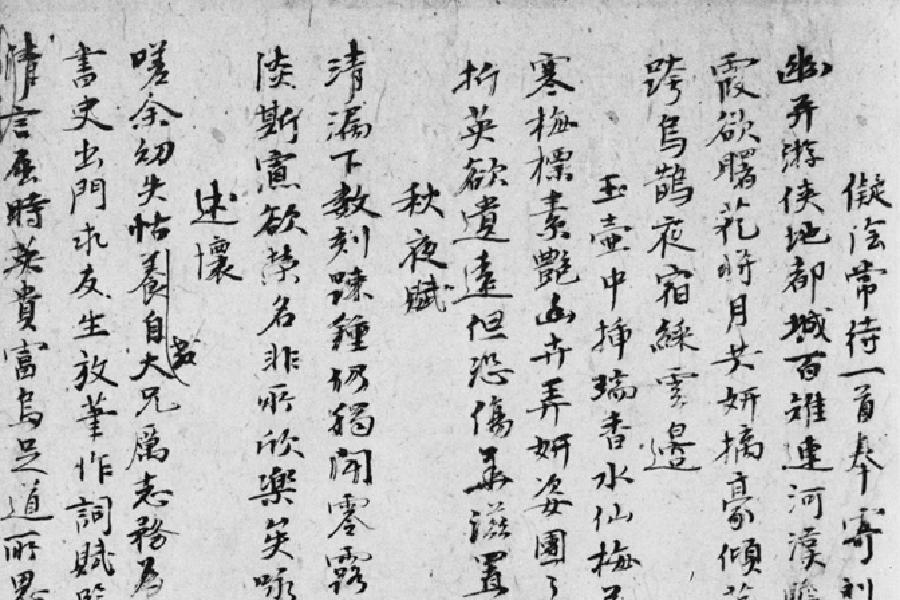 儗陰常待一首奉寄刘
幽并游侠地都城百雉連河漢
霞欲曙花將月共妍摘豪傾
跨烏鵲夜宿綵雲邊
玉壶中揷瑞香水仙梅
寒梅標素艷幽卉弄妍姿團〻
折英欲遺遠但恐傷華滋置
秋夜賦
清漏下数刻踈鐘仍獨聞零露
淡斯慮欲榮名非所欣樂矣咏
述懷
嗟余幼失怙養自大兄爲志務爲
書史出門求友生放筆作詞賦
情言屈時英貴富烏足道所思